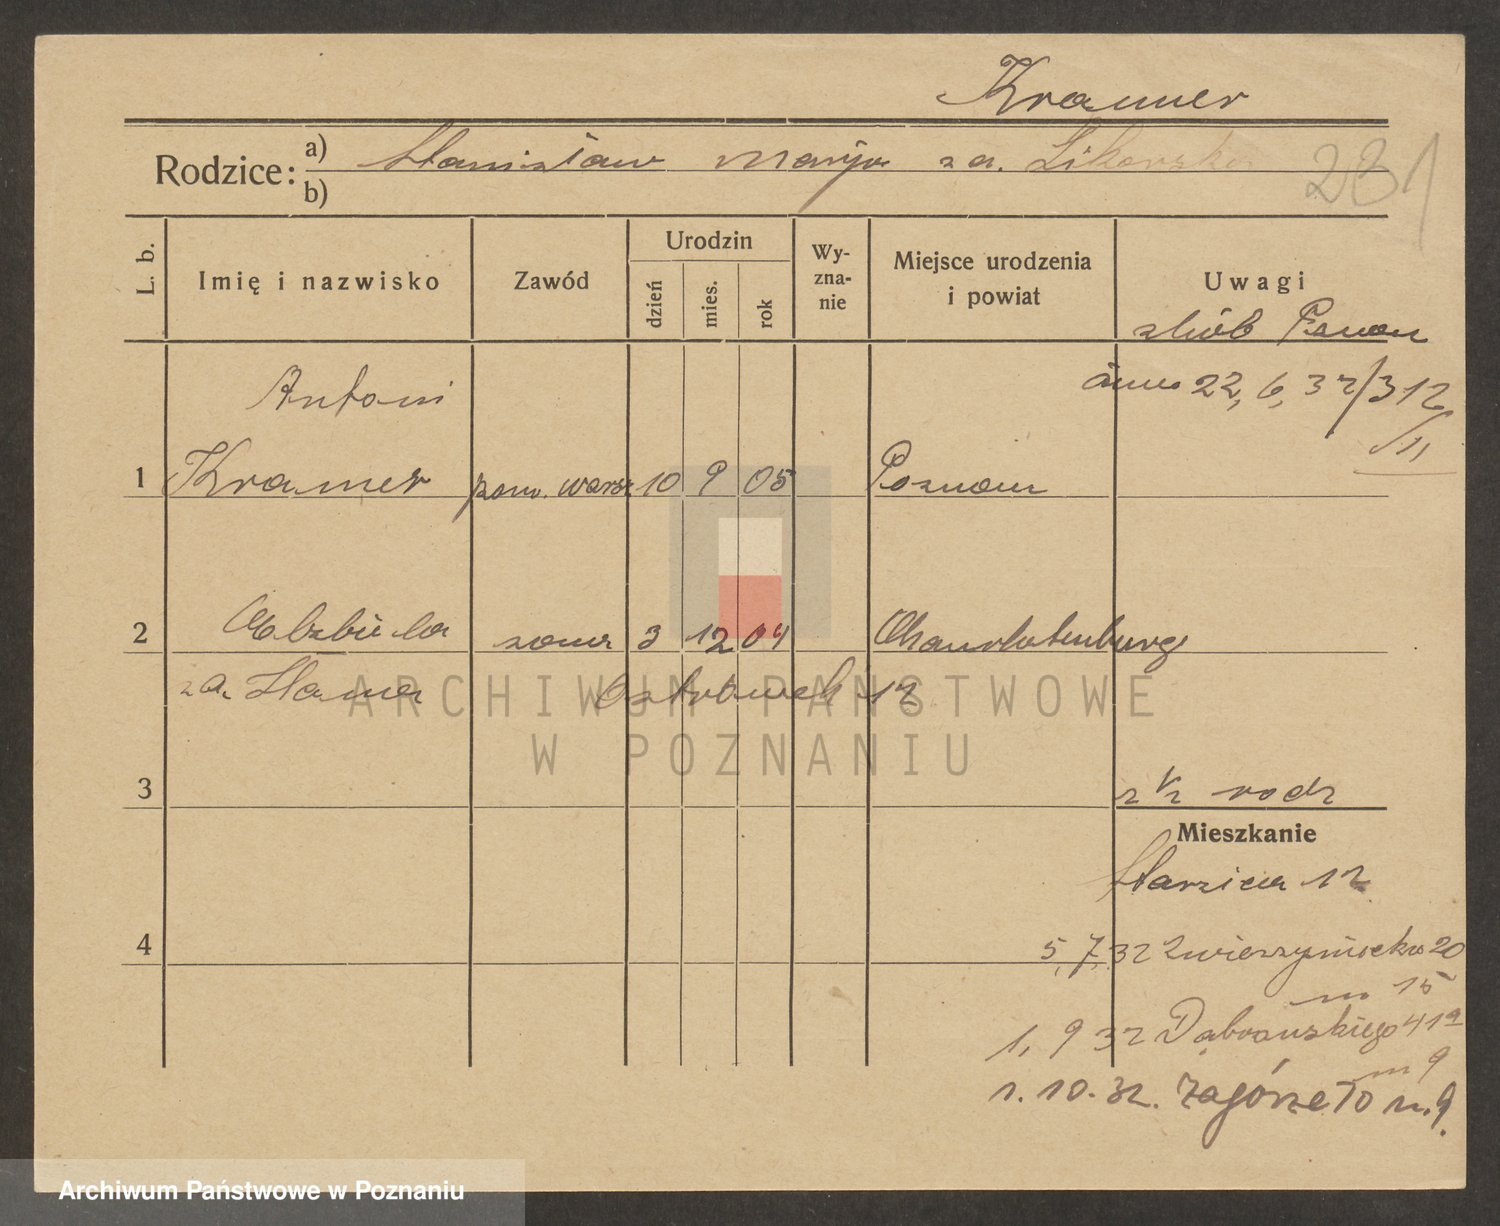 Kramer
Rodzice: a) Stanisław Marja z d. Sikorska
b)
231
L. b.
Imię i nazwisko
Zawód
Urodzin
dzień
mies.
rok
Wy-
zna-
nie
Miejsce urodzenia
i powiat
Uwagi
ślub Poznań
22, 6, 32/312
/II
Antoni
1 Kramer pom. 10 9 05 Poznań
2 żona 3 12 04 Charlottenburg
z d. Ostrówek 12
ARCHIWUM PAŃSTWOWE
W POZNANIU
3
z k rodz
Mieszkanie
12
4
5, 7, 32 Zwierzyniecka 20
m 15
1, 9 32 Dąbrowskiego 41a
m 9
1. 10. 32. Zagórze 10 m. 9.
Archiwum Państwowe w Poznaniu